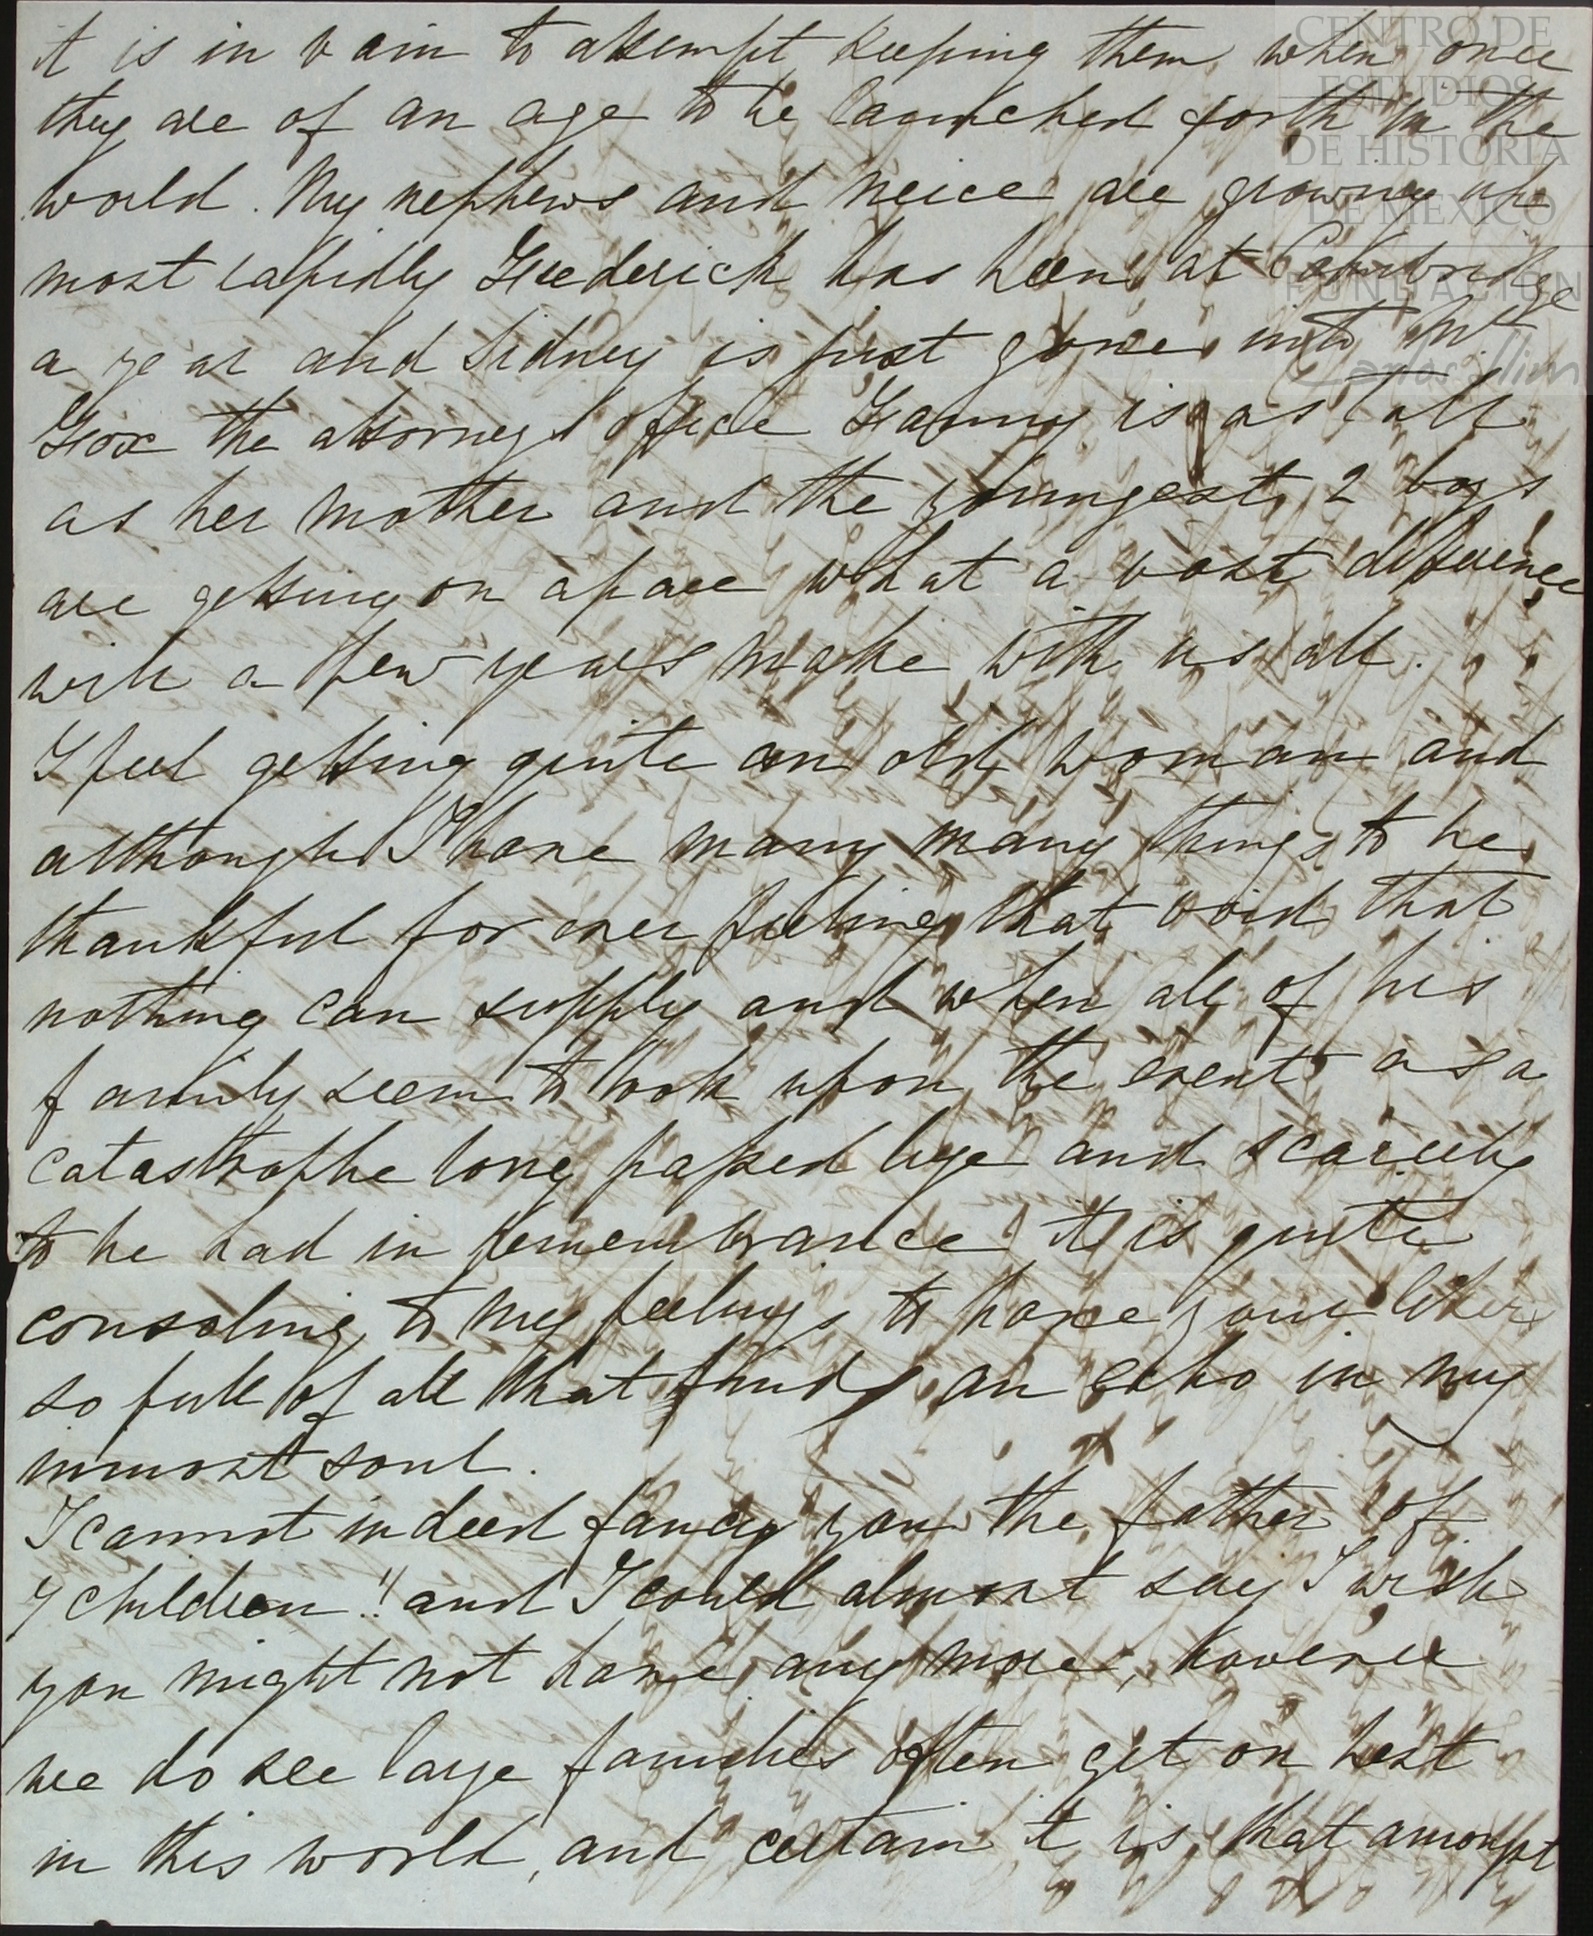 it is in vain to attempt keeping them when once
they are of an age to be launched forth in the
world. My nephews and neice are growing up
most rapidly Frederick has been at Cambridge
a year and Sidney is just gone into Mr
Fox the attorneys office Fanny is as tall
as her mother and the youngest 2 boys
are getting on apace what a vast difference
will a few years make with us all.
I feel getting quite an old woman and
although I have many many things to be
thankful for ever feeling that void that
nothing can supply and when all of his
family seem to look upon the event as a
catastrophe long passed bye and scarcely
to be had in remembrance it is quite
consoling to my feelings to have your letter
so full of all that finds an echo in my
inmost soul.
I cannot indeed fancy you the father of
7 children"!! and I could almost say I wish
you might not have any more, however
we do see large families often get on best
in this world, and certain it is that amongst
CENTRO DE
ESTUDIOS
DE HISTORIA
DE MEXICO
FUNDACIÓN
Carlos Slim